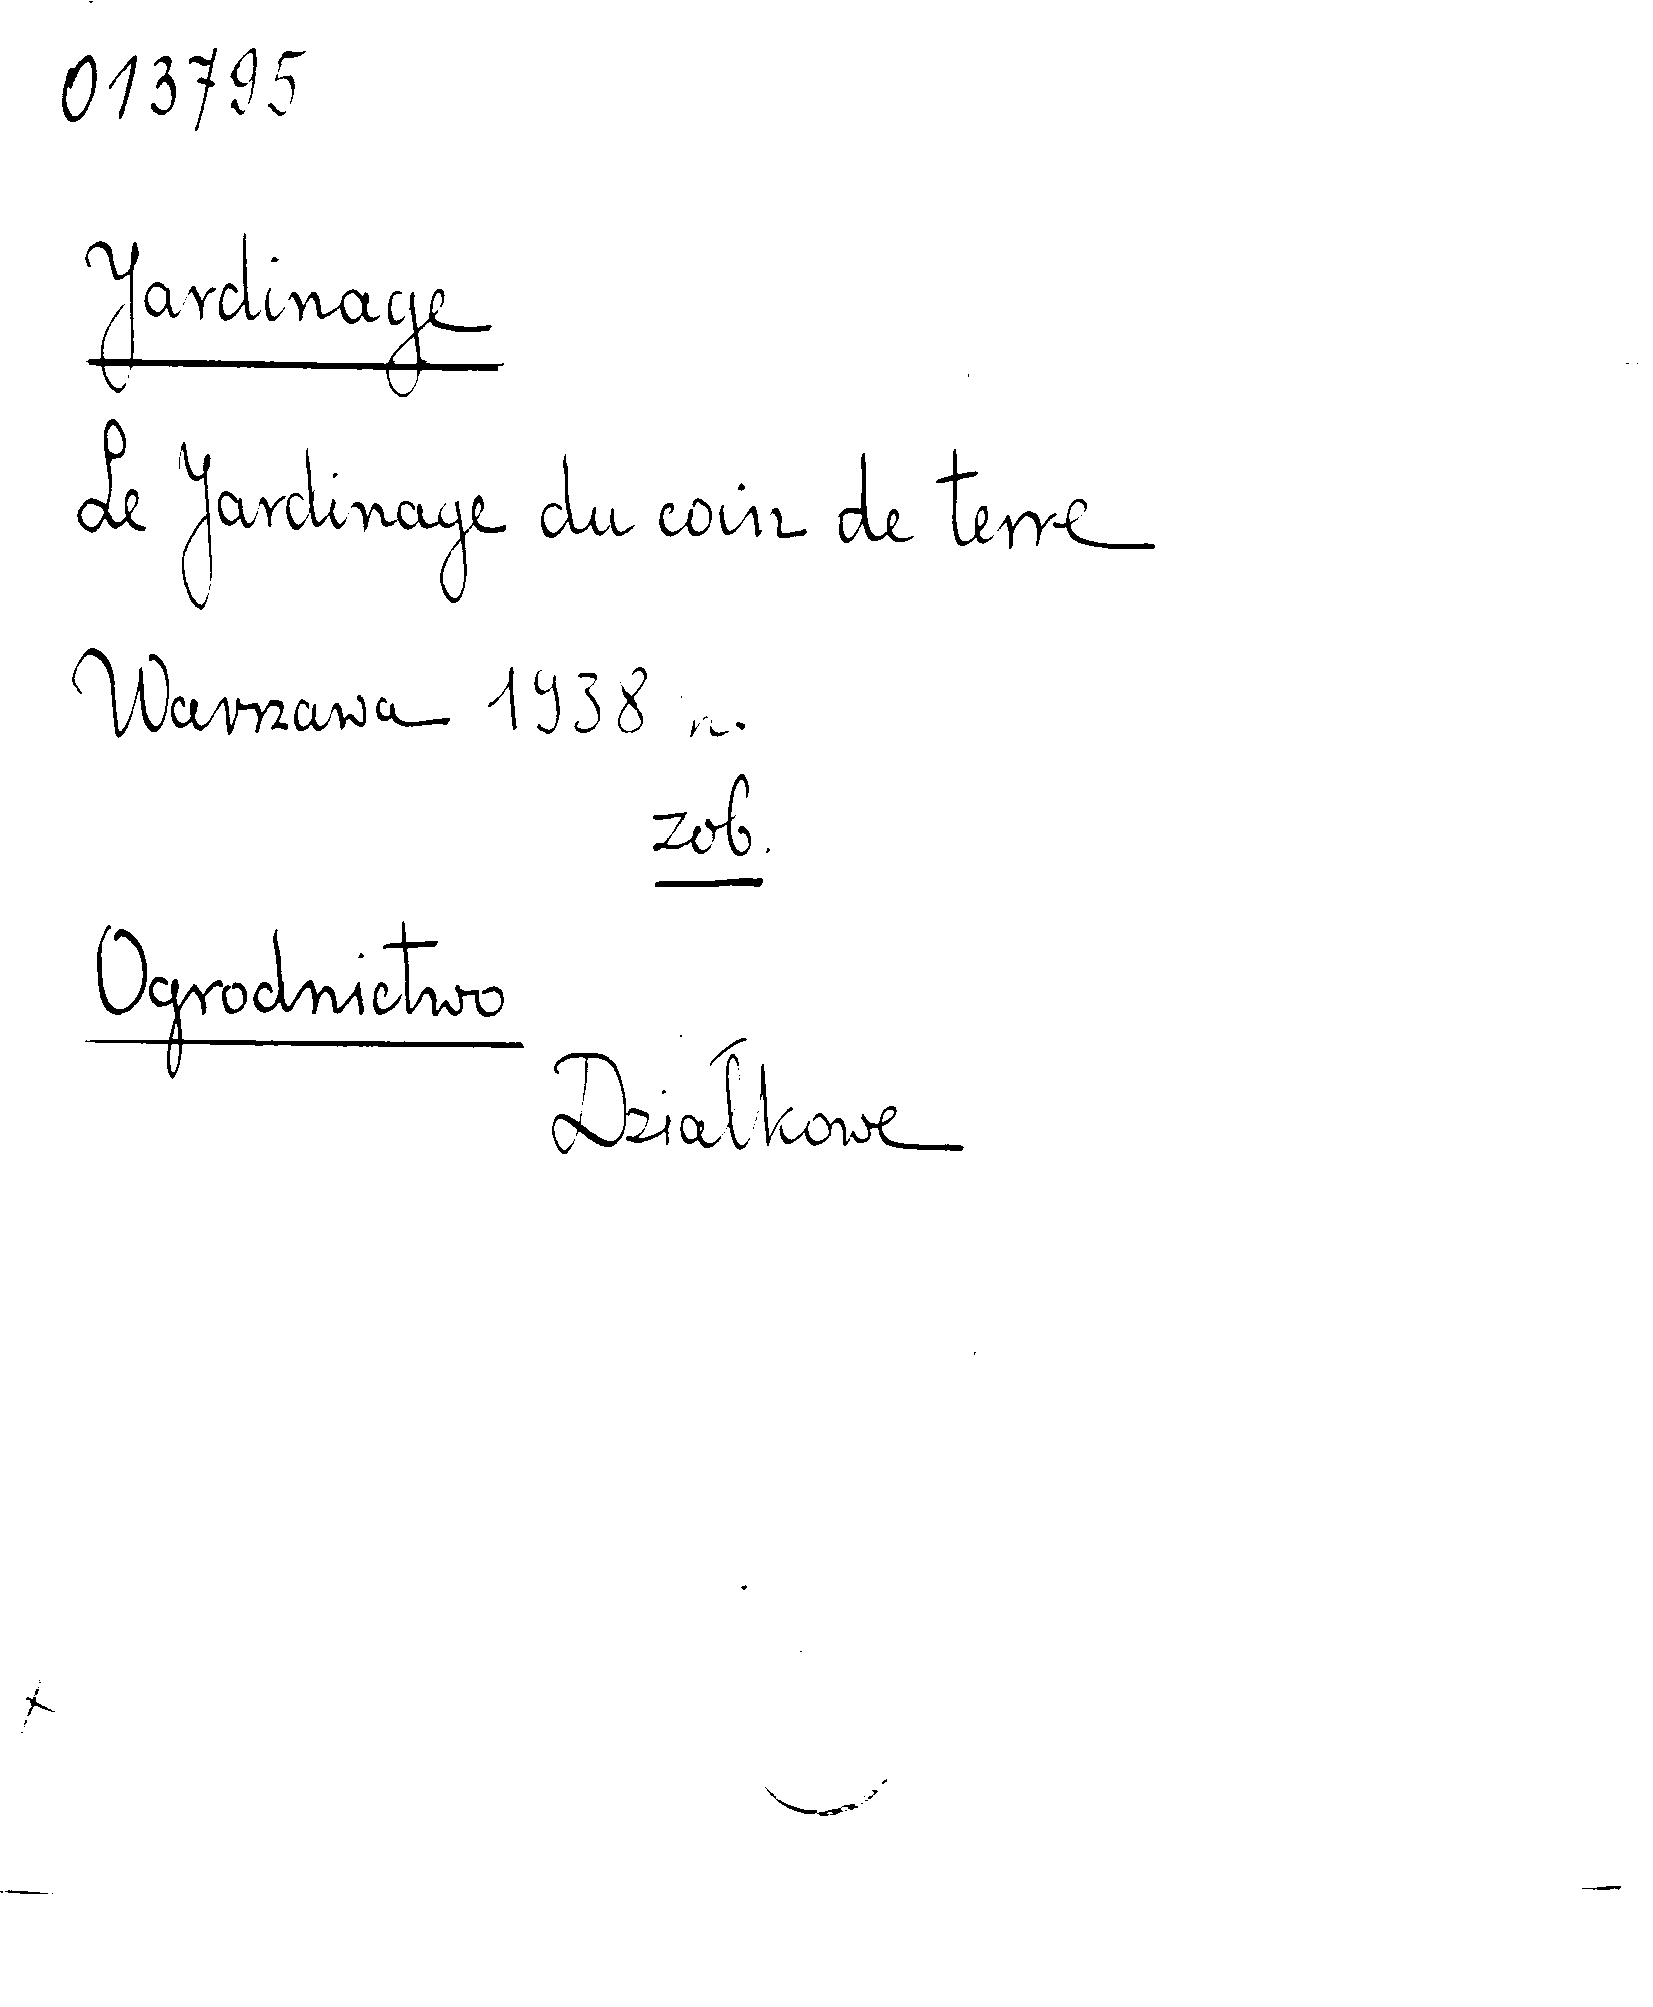 013795
Jardinage
Le Jardinage du coin de terre
Warszawa 1938 r.
zob.
Ogrodnictwo
Działkowe